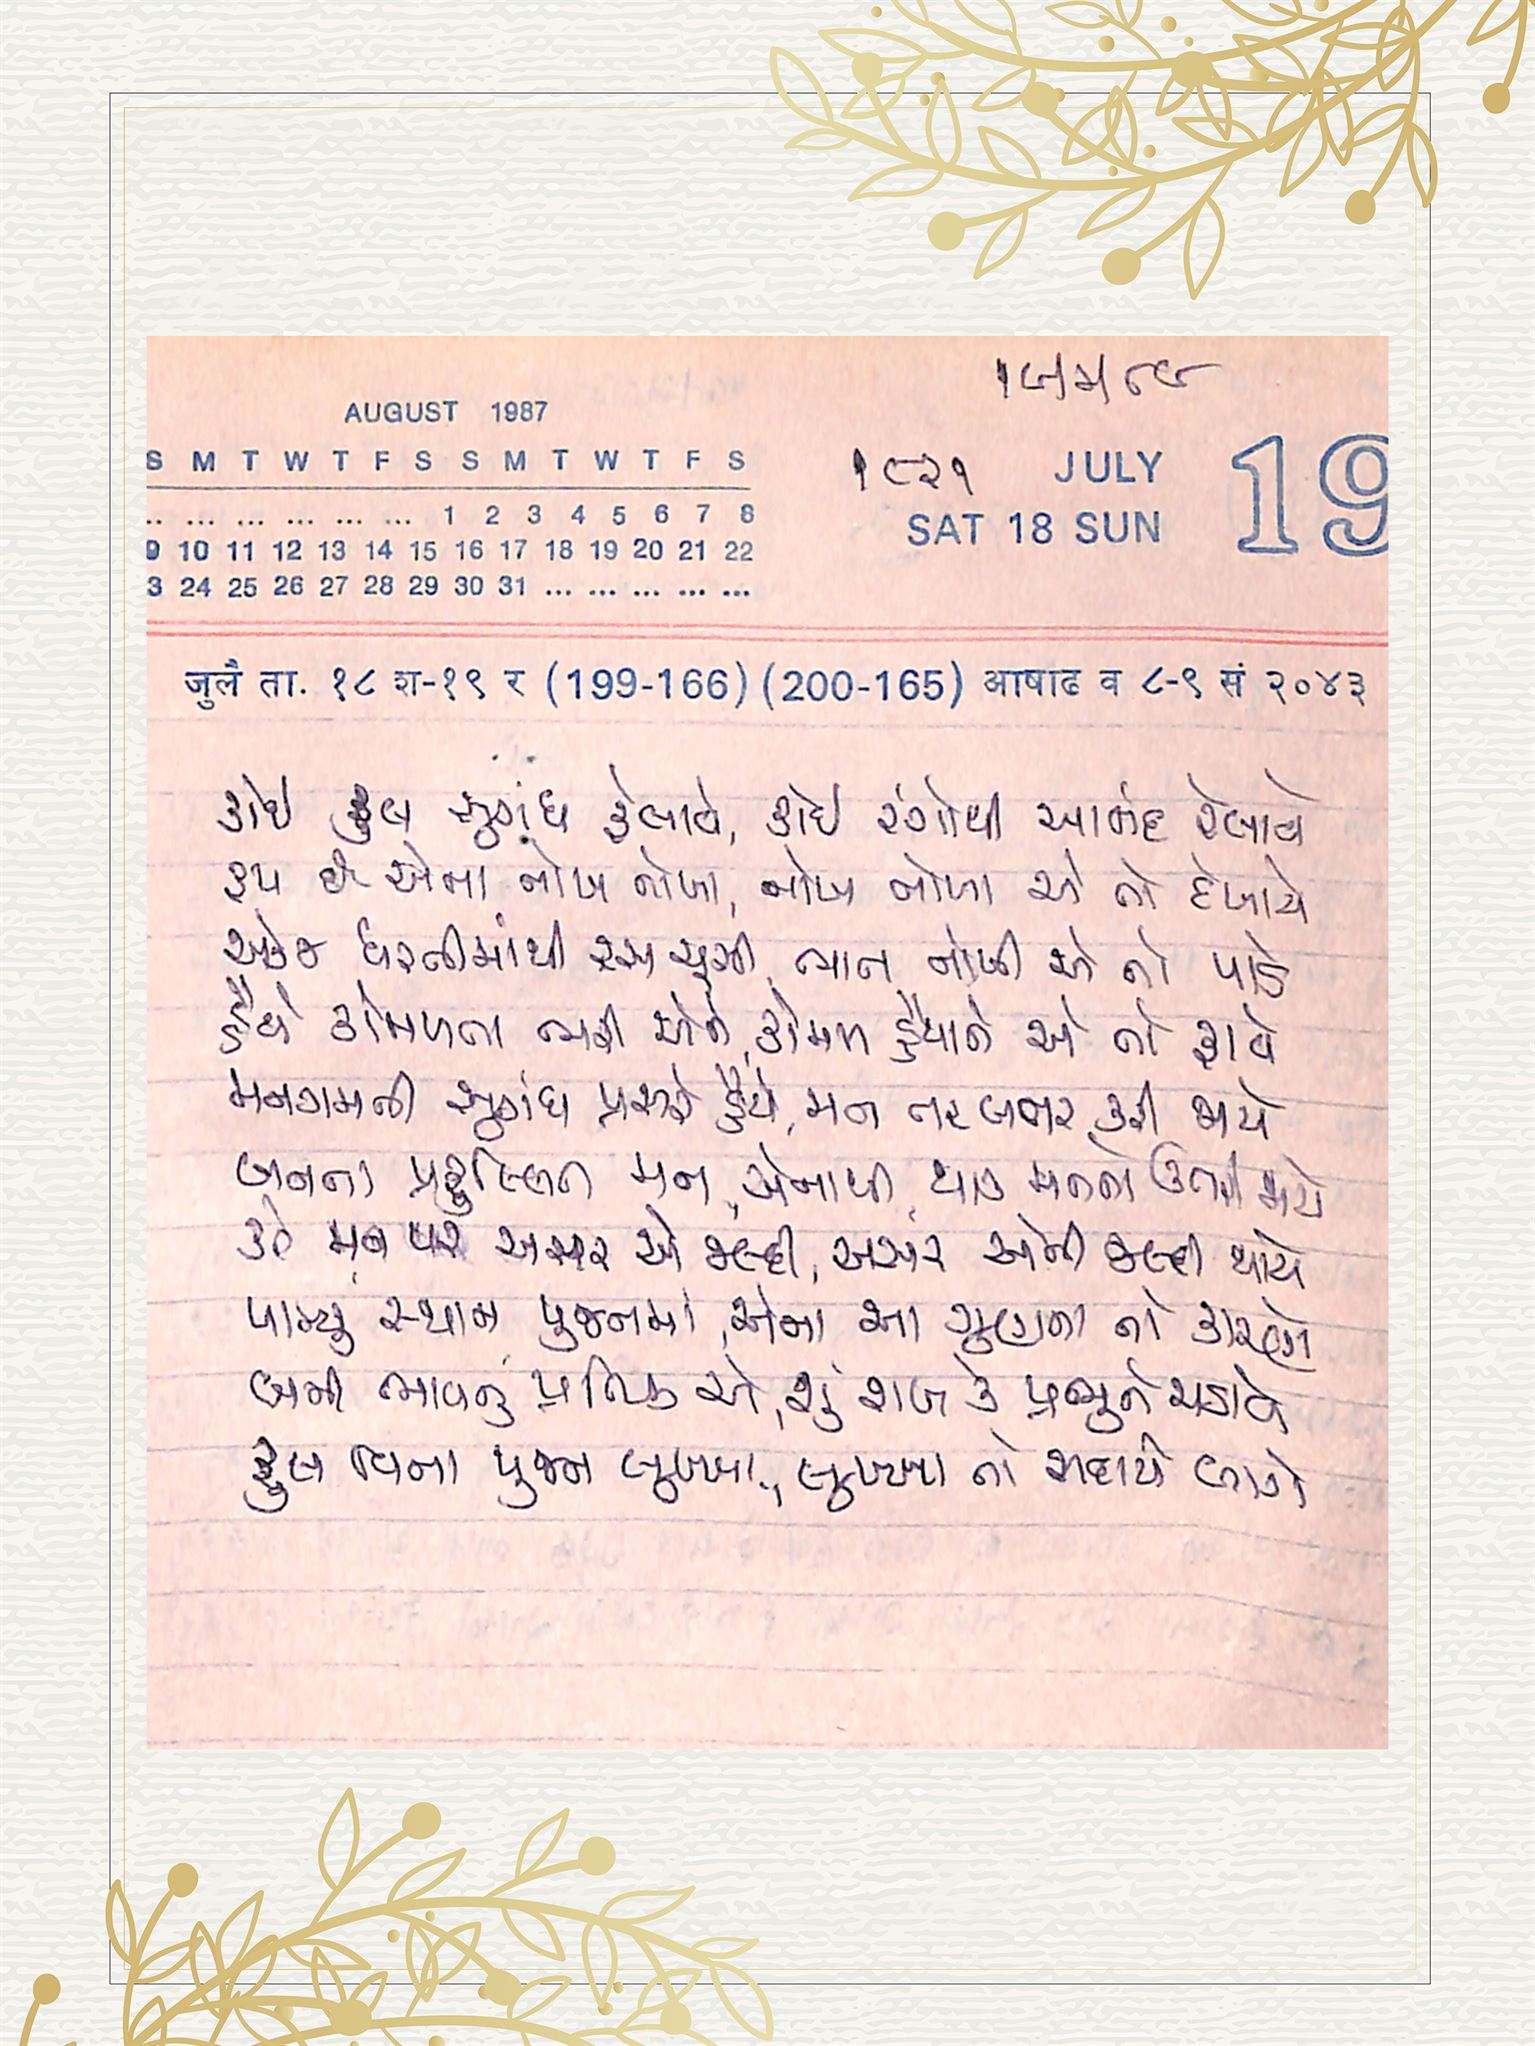 AUGUST 1987
S M T W T F S S M T W T F S
.. ... ... ... ... ... 1 2 3 4 5 6 7 8
9 10 11 12 13 14 15 16 17 18 19 20 21 22
3 24 25 26 27 28 29 30 31 ... ... ... ... ...
૧૮૨૧ JULY
SAT 18 SUN 19
जुलै ता. १८ श-१९ र (199-166) (200-165) आषाढ व ८-९ सं २०४३
કોઈ ફુલ સુગંધ ફેલાવે, કોઈ રંગોથી આનંદ રેલાવે
રૂપ છે એના નોખ નોખા, નોખ નોખા એ તો દેખાયે
એકજ ધરતીમાંથી રસ ચૂસી, ભાત નોખી એ તો પાડે
હૈયે કોમળતા ભરી એને, કોમળ હૈયાને એ તો ફાવે
મનગમતી સુગંધ પ્રસરે હૈયે, મન તરબતર કરી જાયે
બનતા પ્રફુલ્લિત મન, એનાથી, થાક મનનો ઉતરી જાયે
કરે મન પર અસર એ જલ્દી, અસર એની જલ્દી થાયે
પામ્યુ સ્થાન પુજનમાં, એના આ ગુણના તો કારણે
બની ભાવનું પ્રતિક એ, શું રાજ કે પ્રભુને ચડાવે
ફુલ વિના પુજન લુખ્ખા, લુખ્ખા તો સદાયે લાગે